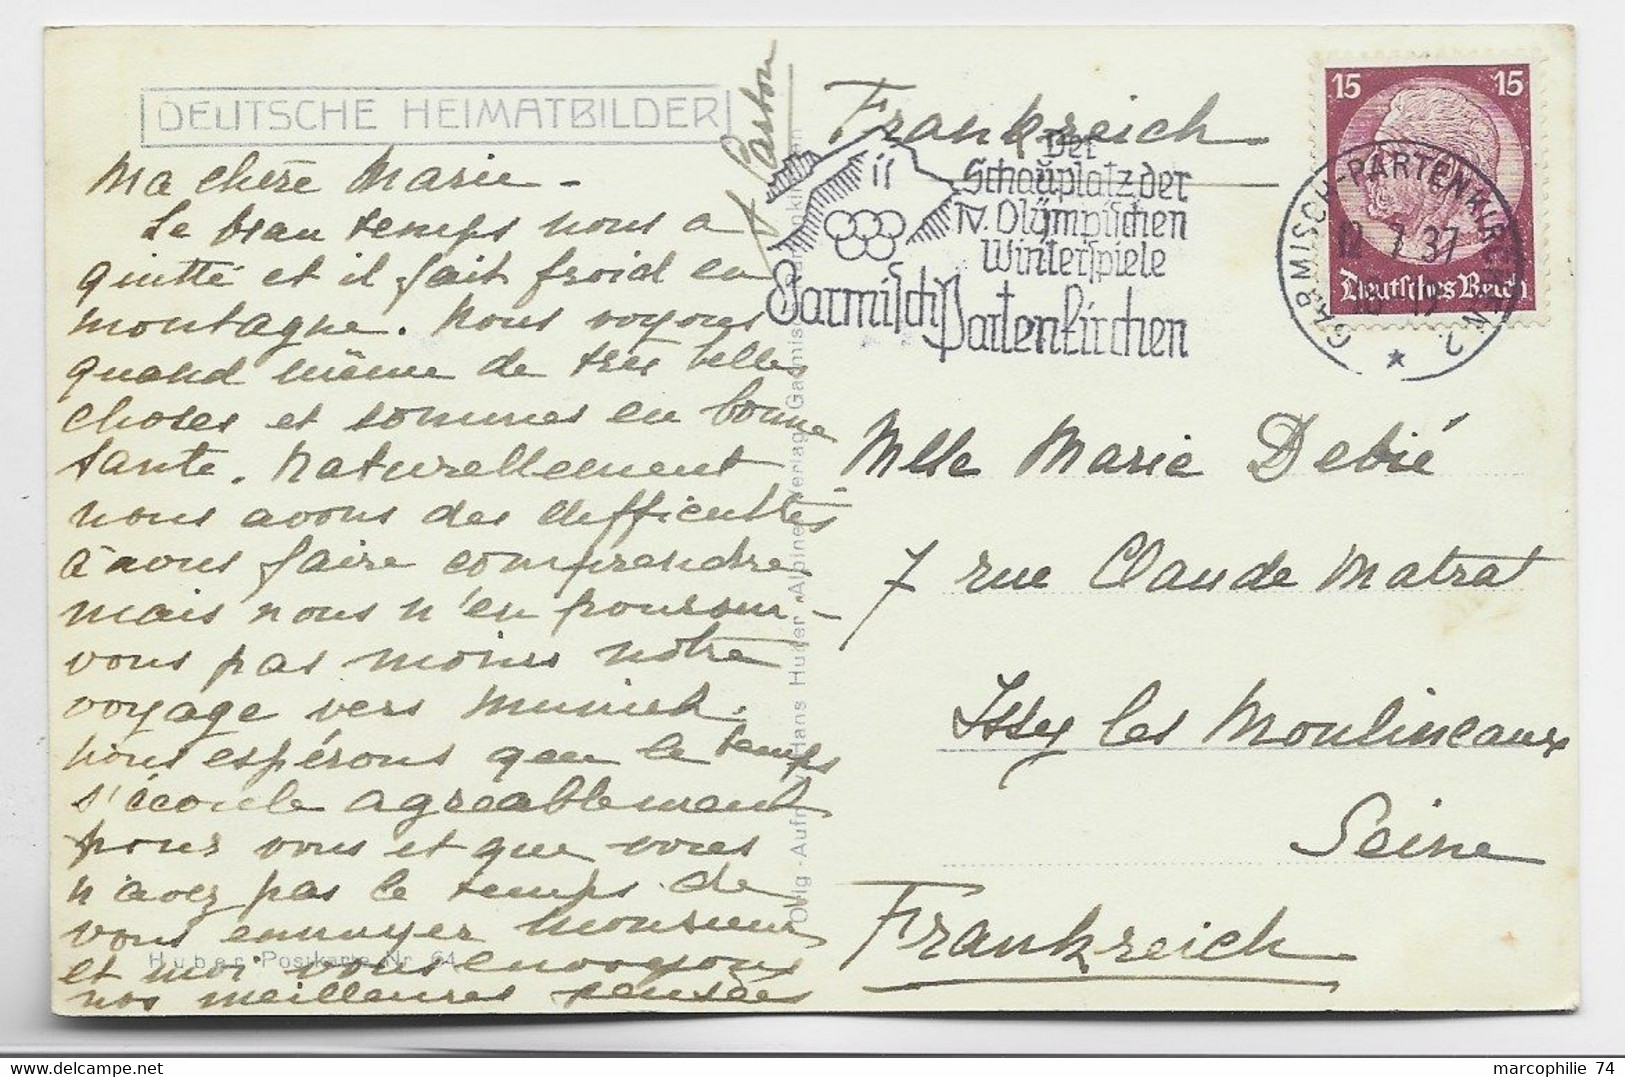 DEUTSCHE HEIMATBILDER
Ma chère Marie -
Le beau temps nous a
quitté et il fait froid en
montagne. Nous voyons
quand même de très belles
choses et sommes en bonne
santé. Naturellement
nous avons des difficultés
à nous faire comprendre
mais nous n'en poursui-
vons pas moins notre
voyage vers Munich.
Nous espérons que le temps
s'écoule agréablement
pour vous et que vous
n'avez pas le temps de
vous ennuyer Monsieur
et moi vous envoyons
nos meilleures pensées
Huber Postkarte Nr. 64
Frankreich
Der
Schauplatz der
IV. Olympischen
Winterspiele
Garmisch Partenkirchen
15 15
Deutsches Reich
GARMISCH-PARTENKIRCHEN 2
12 7 37
Mlle Marie Debié
7 rue Claude Matrat
Issy les Moulineaux
Seine
Frankreich
marcophilie 74